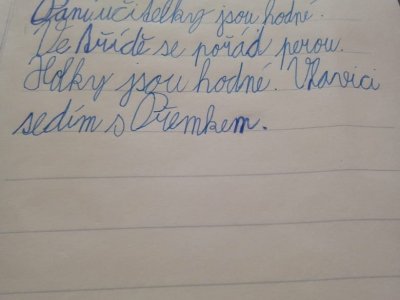 Paní učitelky jsou hodné.
Ve třídě se pořád perou.
Holky jsou hodné. V lavici
sedím s Přemkem.